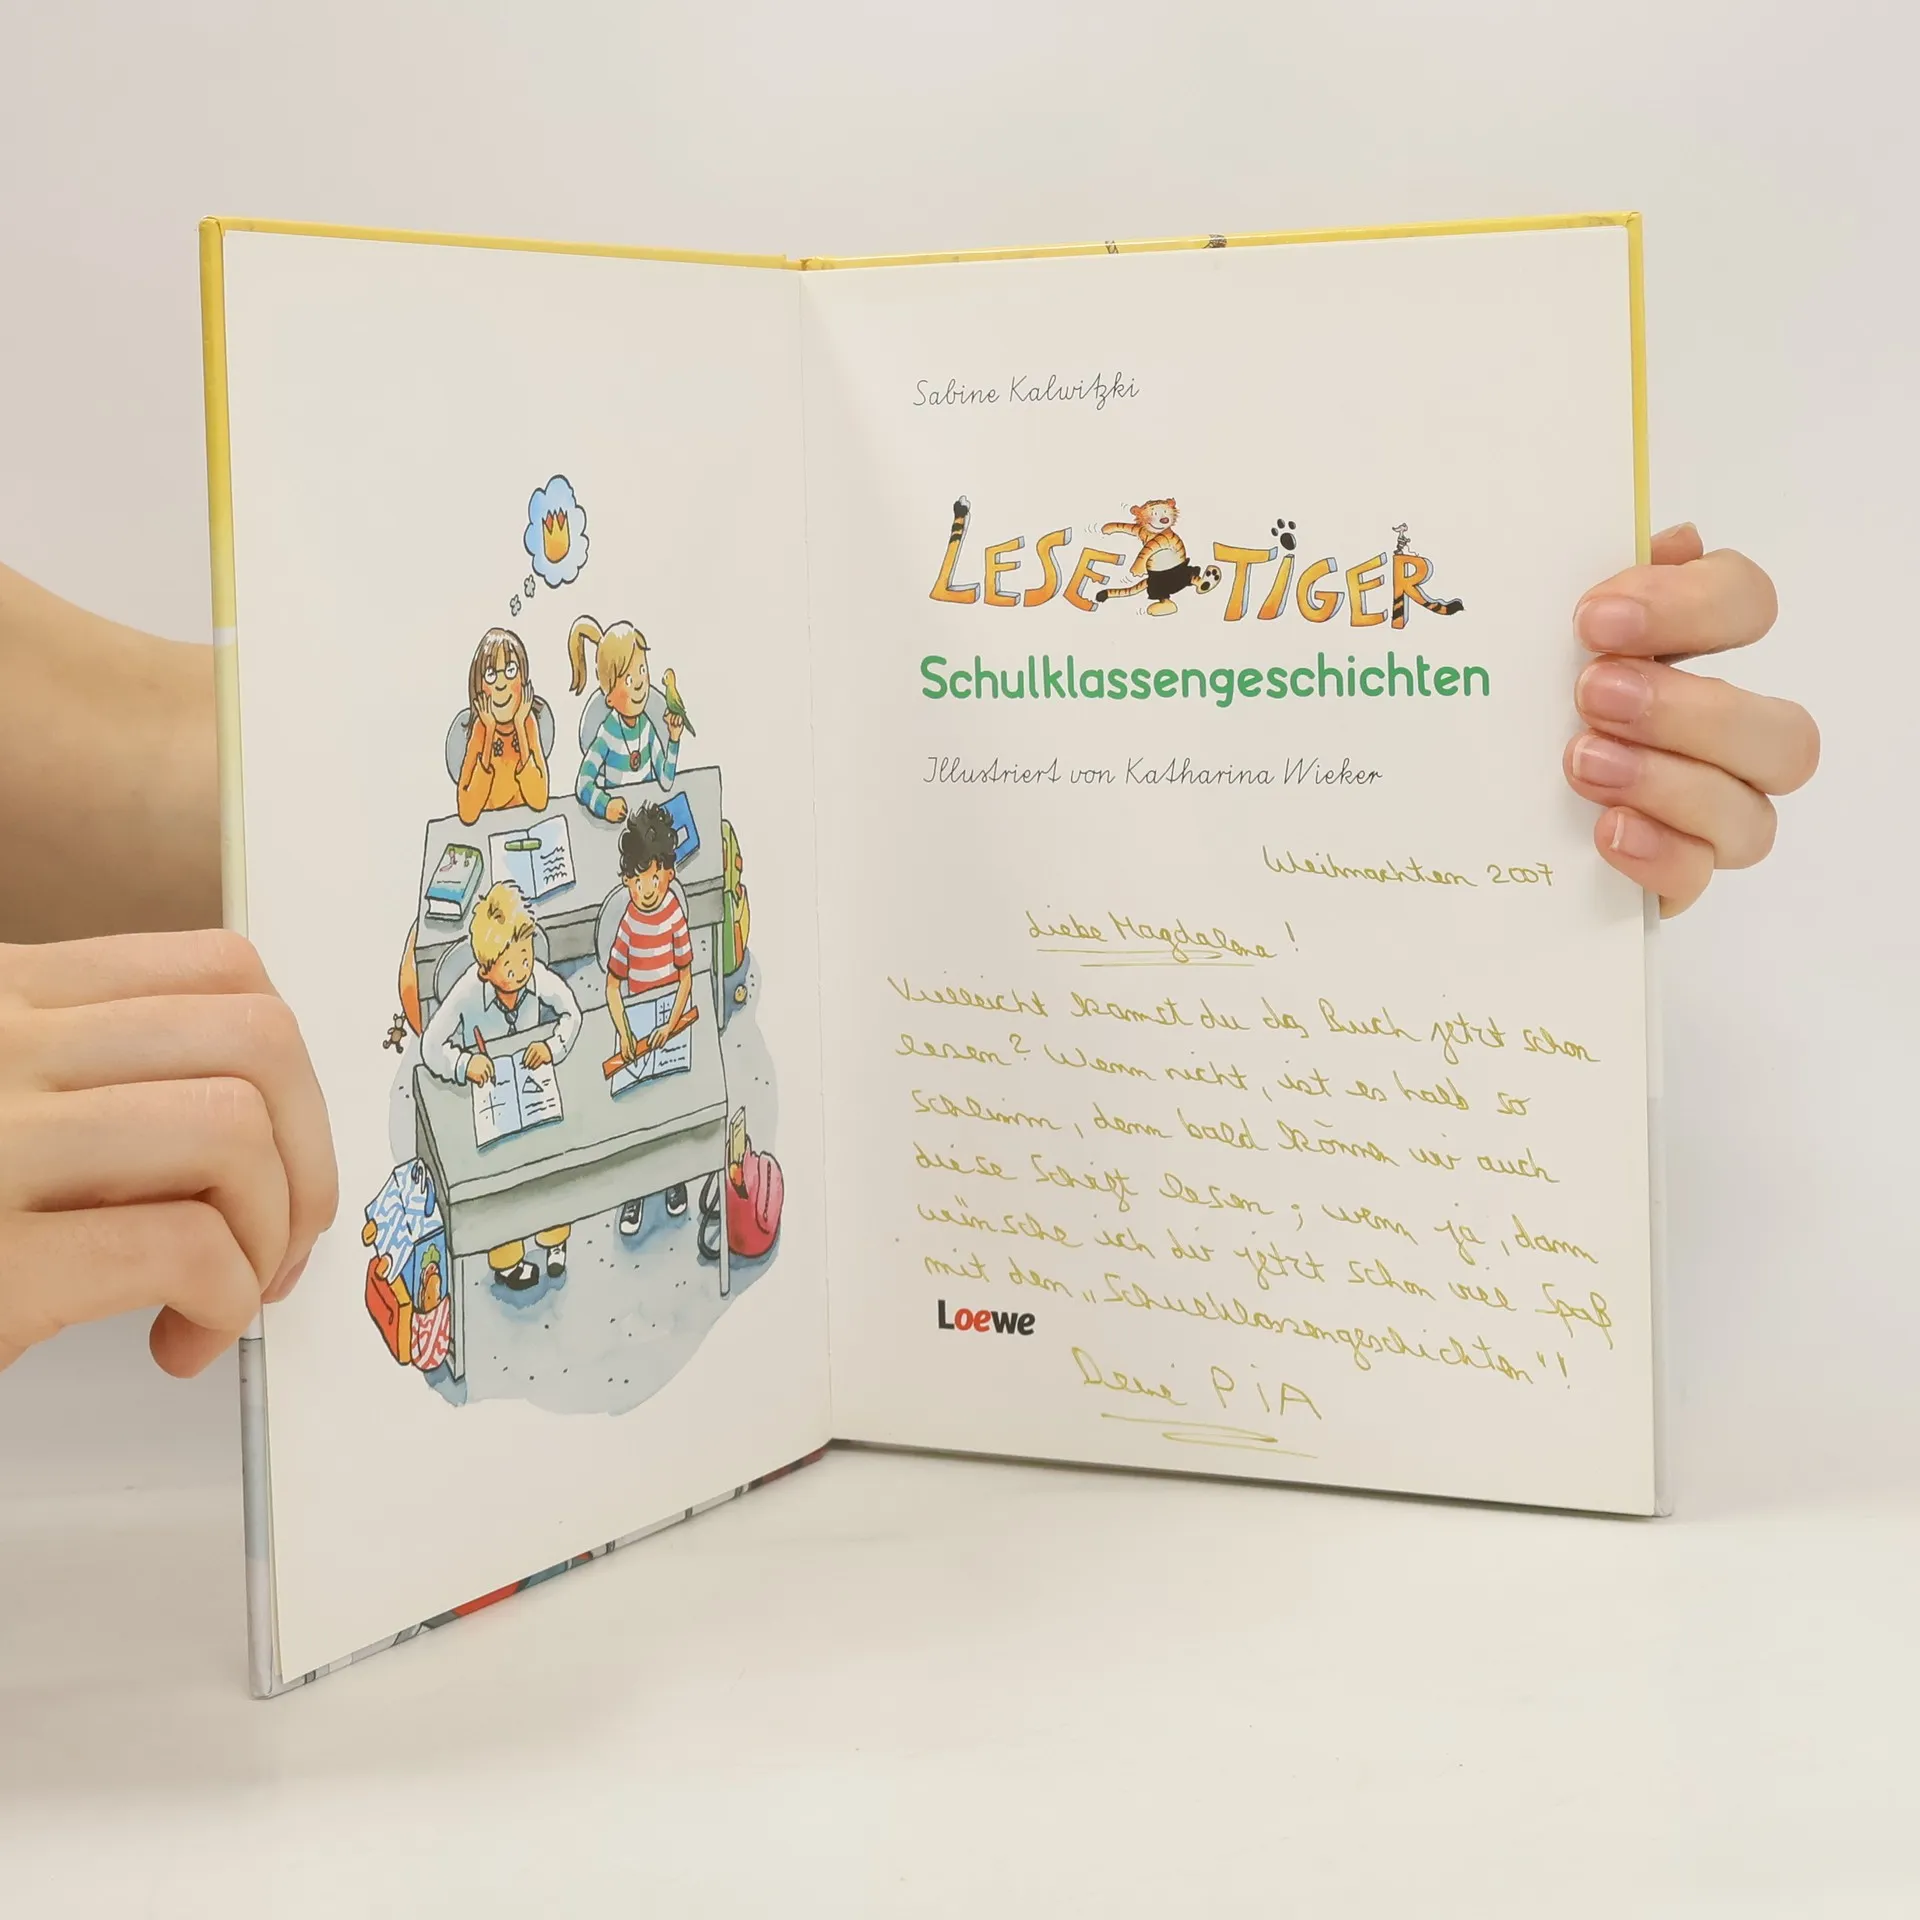 Sabine Kalwitzki
LESETIGER
Schulklassengeschichten
Illustriert von Katharina Wieker
Weihnachten 2007
Liebe Magdalena!
Vielleicht kannst du das Buch jetzt schon
lesen? Wenn nicht, ist es halb so
schlimm, denn bald können wir auch
diese Schrift lesen; wenn ja, dann
wünsche ich dir jetzt schon viel Spaß
mit den „Schulklassengeschichten"!
Loewe
Deine PiA